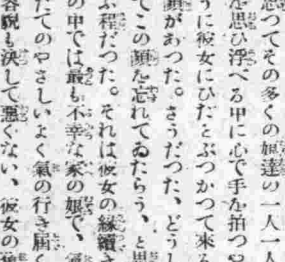 思つてその多くの娘達の一人一人
を思ひ浮べる中に心で手を拍つや
うに彼女にひだとぶつかつて來る
顏があつた。さうだつた、どうし
てこの顏を忘れてゐたらう、と思
ふ程だつた。それは彼女の緣續き
の中では最も不幸な家の娘で、
だてのやさしいよく氣の行き屆く
容貌も決して惡くない、彼女の